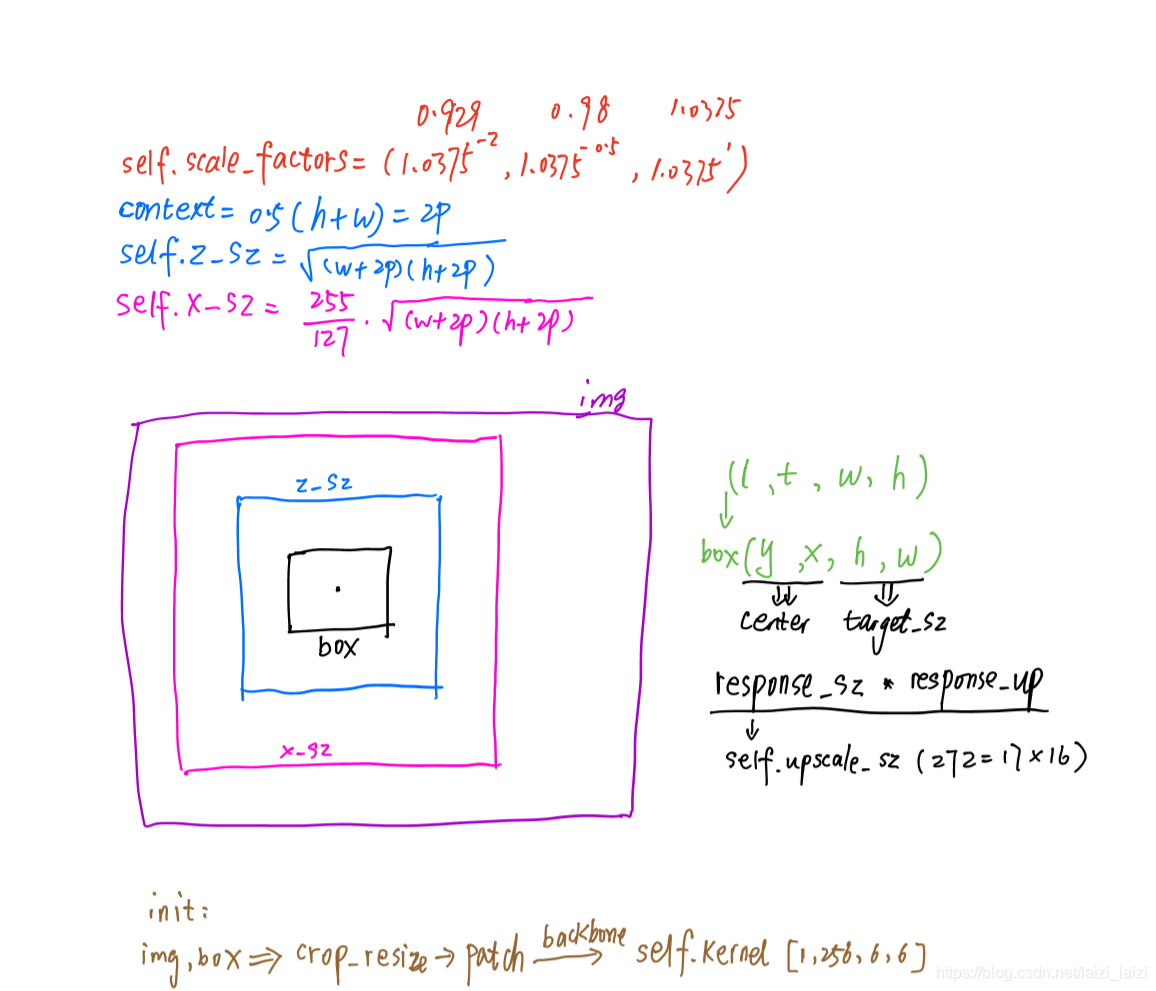 0.929 0.98 1.0375
self.scale_factors= (1.0375⁻², 1.0375⁻⁰·⁵, 1.0375¹)
context= 0.5(h+w) = 2p
self.z_sz = √(w+2p)(h+2p)
self.x_sz = 255/127 · √(w+2p)(h+2p)
img
z_sz
box
x_sz
(l, t, w, h)
↓
box(y, x, h, w)
⇓ ⇓
center target_sz
response_sz * response_up
↓
self.upscale_sz (272=17×16)
init:
img, box ⇒ crop_resize → patch backbone→ self.kernel [1,256,6,6]
https://blog.csdn.net/laizi_laizi